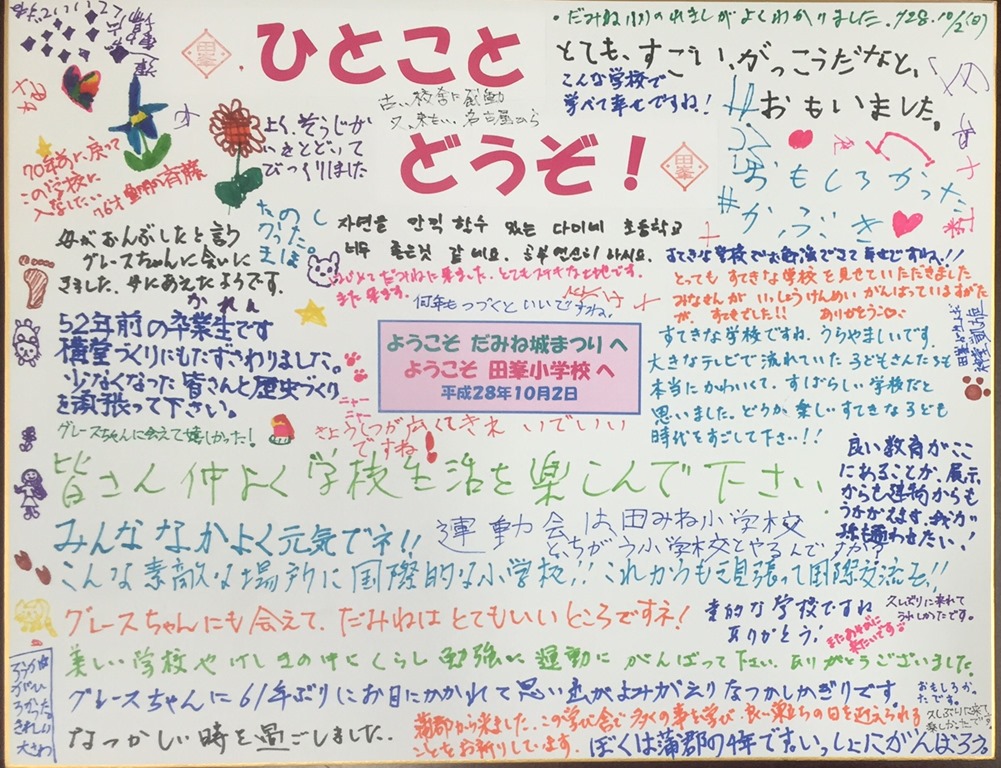 ・だみね小のれきしがよくわかりました。
ひとこと
どうぞ！
田峯
田峯
とても、すごい、がっこうだなと、
おもいました。
こんな学校で
学べて幸せですね！
古い校舎に感動
又、来たい。名古屋から
よく、そうじが
いきとどいてて
びっくりしました
70年前に戻って
この学校に
入学したい
たのし
かった。
おもしろかった
かぶき
母がおんぶしたと言う
グレースちゃんに会いに
きました。母にあえたようです。
자연을 만끽 할수 있는 다미네 초등학교
너무 좋은것 같네요. 공부 열심히 하세요.
また来ます。
何年もつづくといいですね。
すてきな学校でお勉強できて幸せですね。!!
とっても すてきな学校を見せていただきました
みなさんが いっしょうけんめい がんばっているすがた
が、すてきでした!! ありがとう♡
52年前の卒業生です
講堂づくりにもたずさわりました。
少なくなった皆さんと歴史づくり
を頑張って下さい。
グレースちゃんに会えて嬉しかった！
ようこそ だみね城まつり へ
ようこそ 田峯小学校 へ
平成28年10月2日
すてきな学校ですね。うらやましいです。
大きなテレビで流れていた 子どもさんたちも
本当にかわいくて、すばらしい学校だと
思いました。どうか、楽しいすてきな子ども
時代をすごして下さい!!
ニャー
ニャー
きょうしつが広くてきれいでいいい
ですね！
良い教育がここ
にあることが、展示
からも建物からも
うかがえます。我が
孫も通わせたい！
皆さん仲よく学校生活を楽しんで下さい
みんななかよく元気でネ!!
運動会は田みね小学校
とちがう小学校とやるんですか？
こんな素敵な場所に国際的な小学校!! これからも頑張って国際交流を!!
グレースちゃんにも会えて、だみねはとてもいいところですネ！
素的な学校ですね
ありがとう！
久しぶりに来れて
うれしかったです。
美しい学校やけしきの中にくらし 勉強に運動に がんばって下さい。ありがとうございました。
グレースちゃんに61年ぶりにお目にかかれて思い出がよみがえりなつかしかぎりです。
なつかしい時を過ごしました。
ろうかが
ひ
ろかった
きれい
蒲郡から来ました。この学び舎で多くの事を学び、良い巣立ちの日を迎えられる
ことをお祈りしています。
ぼくは蒲郡の4年です。いっしょにがんばろう。
おもしろか。
たです。
久しぶりに来て
楽しかったです